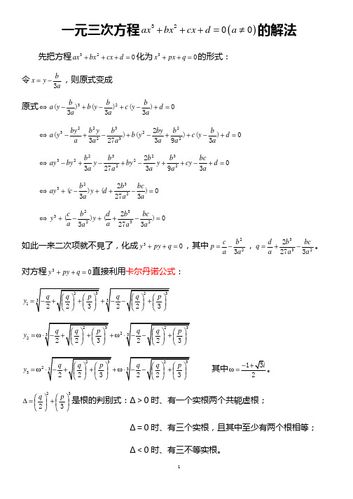 一元三次方程ax³+bx²+cx+d=0(a≠0)的解法
先把方程ax³+bx²+cx+d=0化为x³+px+q=0的形式：
令x=y-b/3a，则原式变成
原式⇔a(y-b/3a)³+b(y-b/3a)²+c(y-b/3a)+d=0
⇔a(y³-by²/a+b²y/3a²-b³/27a³)+b(y²-2by/3a+b²/9a²)+c(y-b/3a)+d=0
⇔ay³-by²+b²/3a y-b³/27a²+by²-2b²/3a y+b³/9a²+cy-bc/3a+d=0
⇔ay³+(c-b²/3a)y+(d+2b³/27a²-bc/3a)=0
⇔y³+(c/a-b²/3a²)y+(d/a+2b³/27a³-bc/3a²)=0
如此一来二次项就不見了，化成y³+py+q=0，其中p=c/a-b²/3a²，q=d/a+2b³/27a³-bc/3a²。
对方程y³+py+q=0直接利用卡尔丹诺公式：
y₁=∛(-q/2+√((q/2)²+(p/3)³))+∛(-q/2-√((q/2)²+(p/3)³))
y₂=ω·∛(-q/2+√((q/2)²+(p/3)³))+ω²·∛(-q/2-√((q/2)²+(p/3)³))
y₃=ω²·∛(-q/2+√((q/2)²+(p/3)³))+ω·∛(-q/2-√((q/2)²+(p/3)³)) 其中ω=(-1+√3i)/2。
Δ=(q/2)²+(p/3)³是根的判别式：Δ＞0时、有一个实根两个共轭虚根；
Δ=0时、有三个实根，且其中至少有两个根相等；
Δ＜0时、有三不等实根。
1